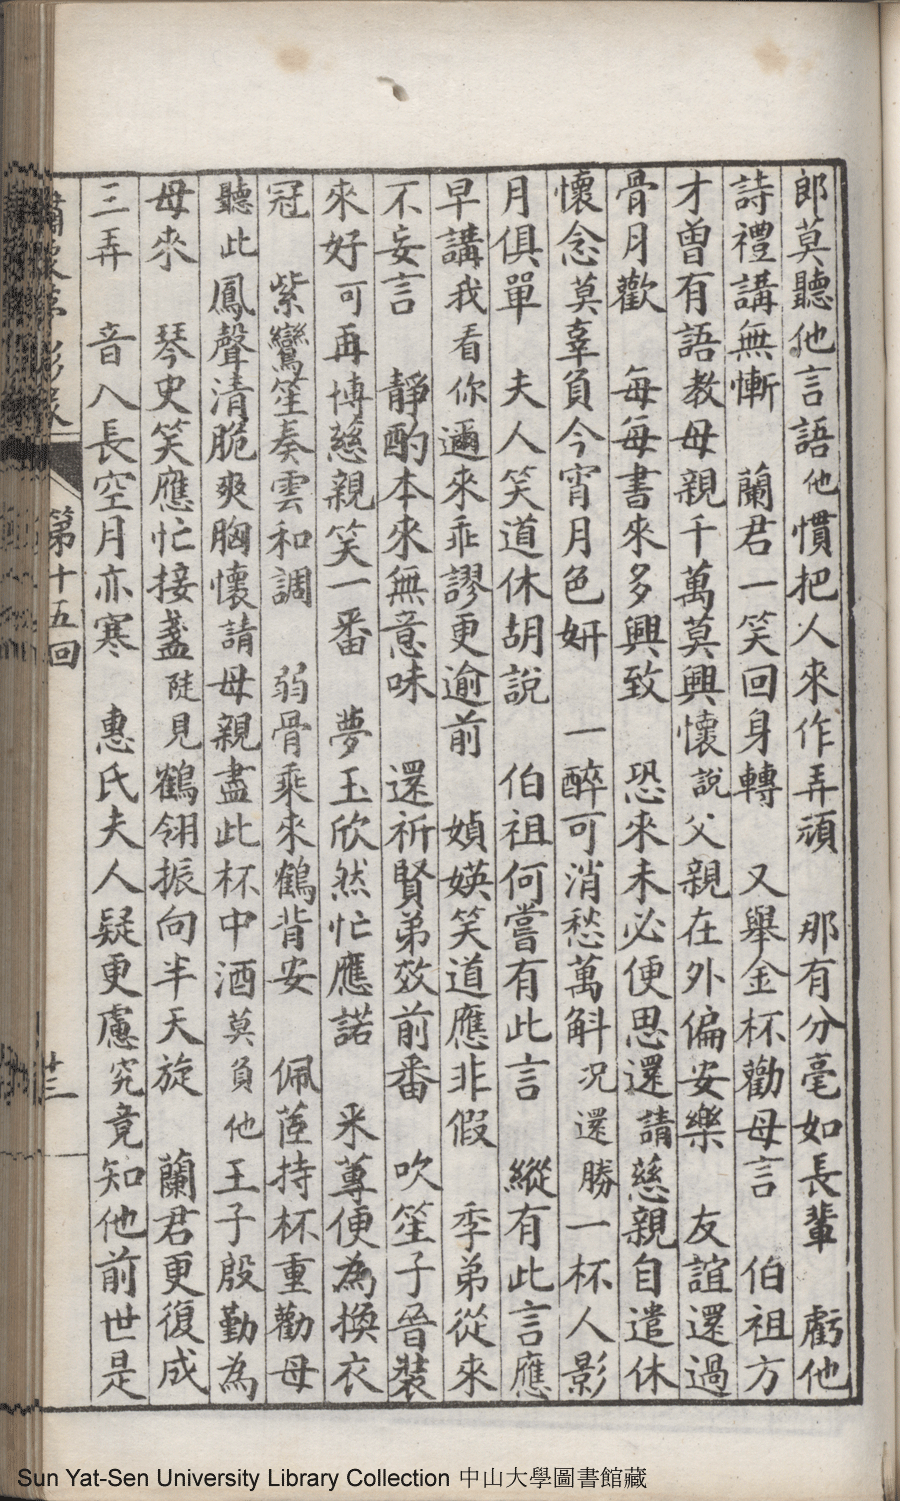 郎莫聽他言語他慣把人來作弄頑　那有分毫如長輩　虧他
詩禮講無慚　蘭君一笑回身轉　又舉金杯勸母言　伯祖方
才曾有語教母親千萬莫興懷說父親在外偏安樂　友誼還過
骨月歡　每每書來多興致　恐來未必便思還請慈親自遣休
懷念莫辜負今宵月色妍　一醉可消愁萬斛況還勝一杯人影
月俱單　夫人笑道休胡說　伯祖何嘗有此言　縱有此言應
早講我看你邇來乖謬更逾前　媜媖笑道應非假　季弟從來
不妄言　靜酌本來無意味　還祈賢弟效前番　吹笙子晉裝
來好可再博慈親笑一番　夢玉欣然忙應諾　釆蓴便為換衣
冠　紫鸞笙奏雲和調　弱骨乘來鶴背安　佩茝持杯重勸母
聽此鳳聲清脆爽胸懷請母親盡此杯中酒莫負他王子殷勤為
母來　琴史笑應忙接盞陡見鶴翎振向半天旋　蘭君更復成
三弄　音入長空月亦寒　惠氏夫人疑更慮究竟知他前世是
第十五回
廿三
Sun Yat-Sen University Library Collection 中山大學圖書館藏